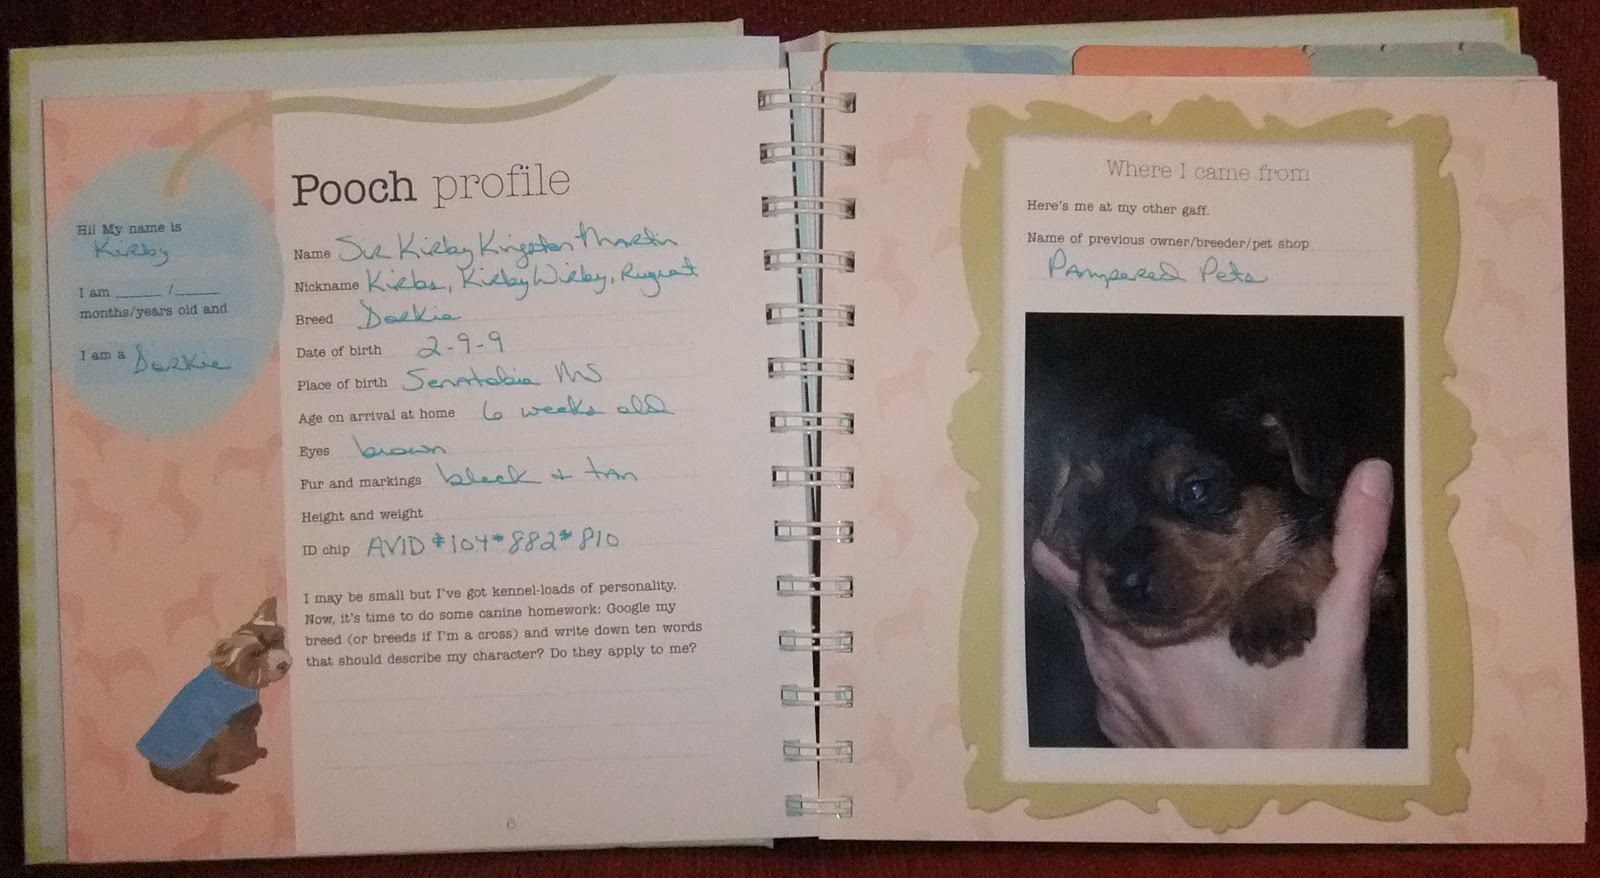 Hi! My name is
Kirby
I am ____ / ____
months/years old and
I am a Dorkie
Pooch profile
Name Sir Kirby Kingston Martin
Nickname Kirbs, Kirby Wirby, Rugrat
Breed Dorkie
Date of birth 2-9-9
Place of birth Senatobia MS
Age on arrival at home 6 weeks old
Eyes brown
Fur and markings black + tan
Height and weight
ID chip AVID*104*882*810
I may be small but I've got kennel-loads of personality.
Now, it's time to do some canine homework: Google my
breed (or breeds if I'm a cross) and write down ten words
that should describe my character? Do they apply to me?
6
Where I came from
Here's me at my other gaff.
Name of previous owner/breeder/pet shop
Pampered Pets